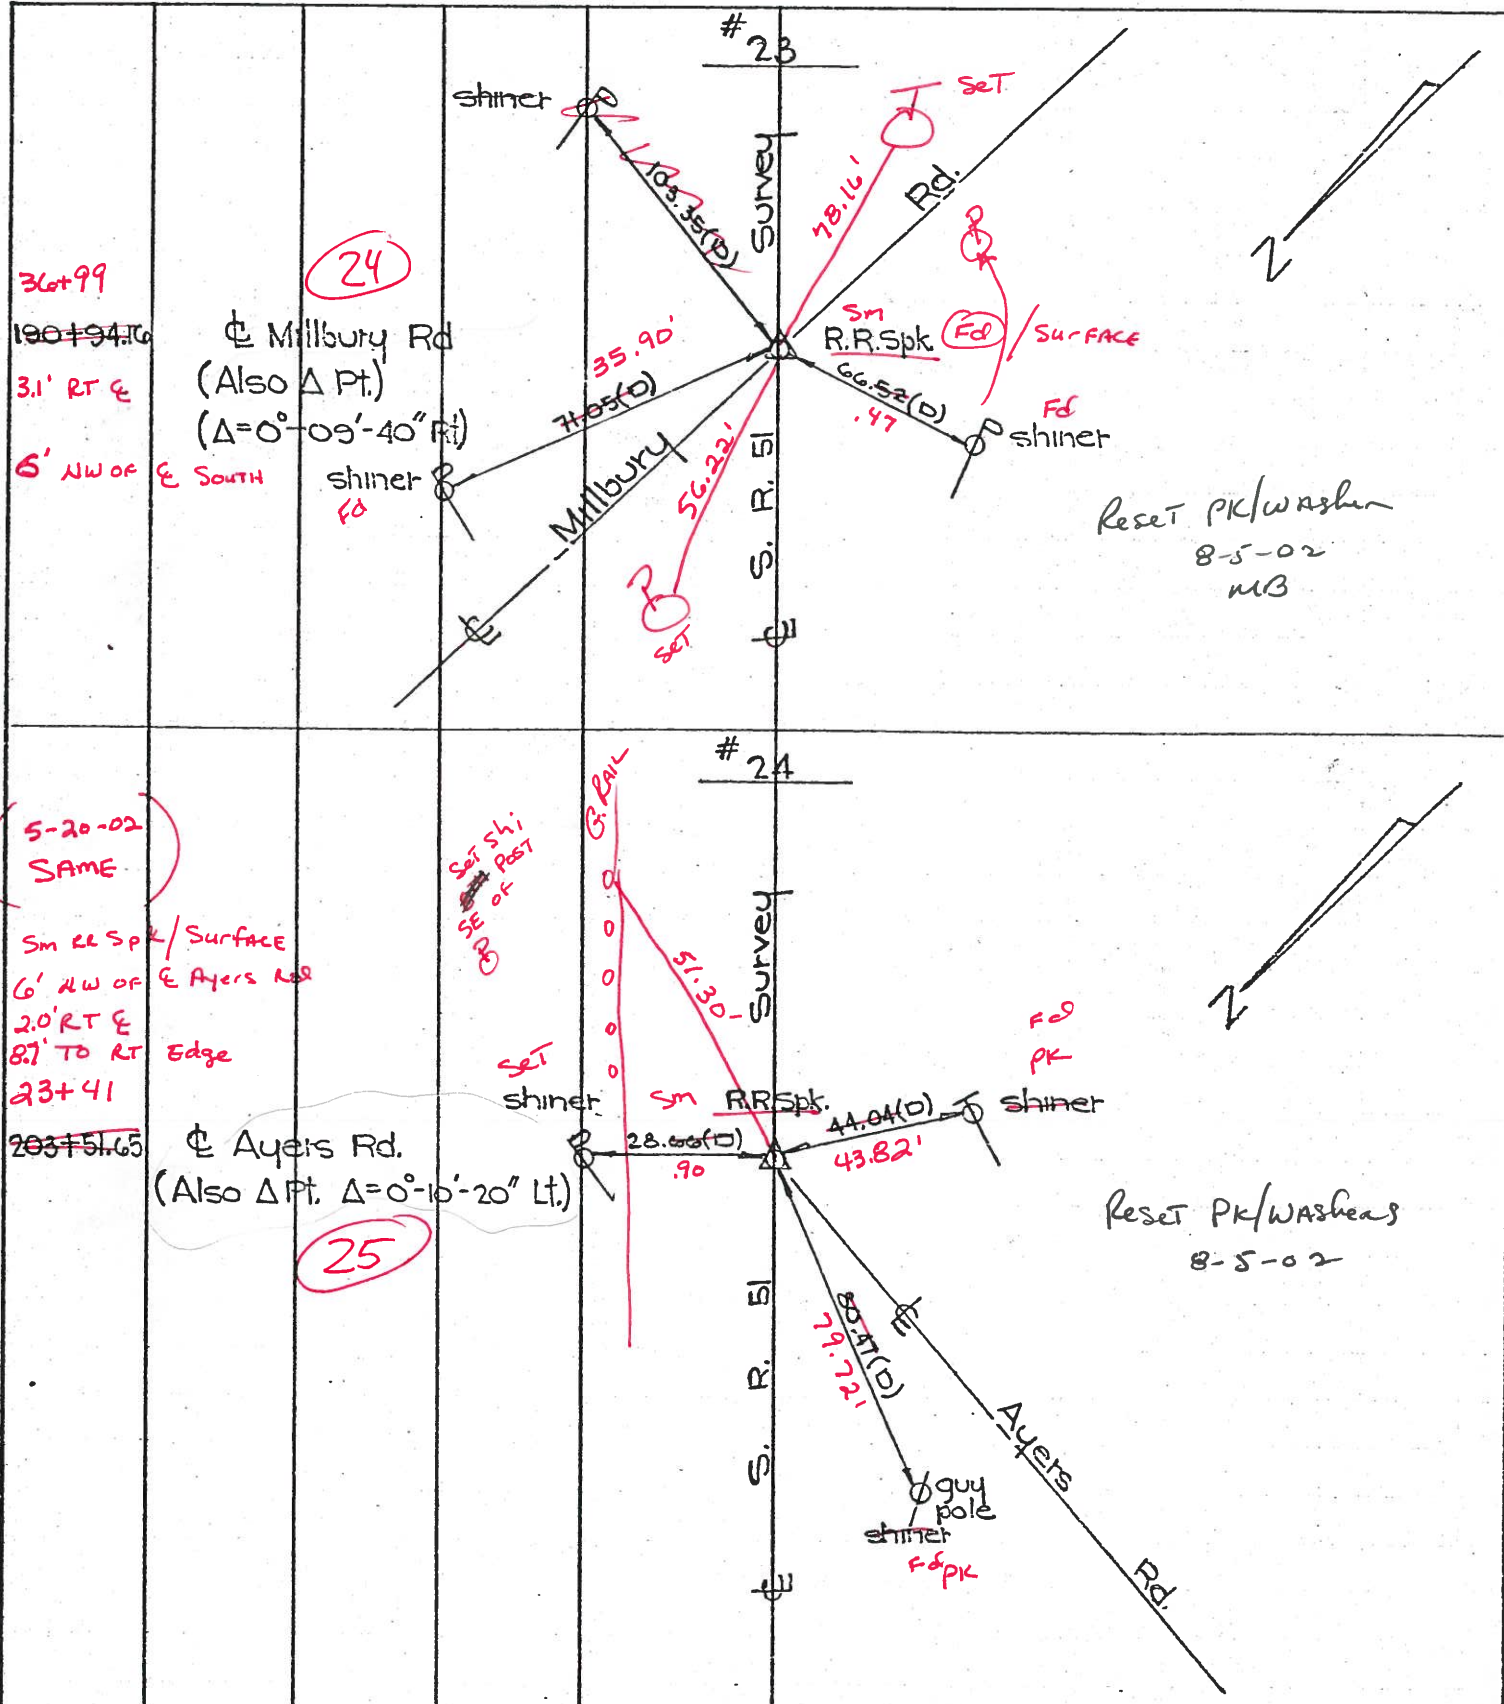 # 23
shiner
SeT
103.35(D)
Survey
78.16'
Rd.
P
24
36+99
190+94.16
3.1' RT ℄
6' NW OF ℄ SOUTH
℄ Millbury Rd
(Also Δ Pt.)
(Δ=0°-09'-40" Rt)
shiner
Fd
35.90'
71.05(D)
Sm
R.R.Spk.
Fd
/ SURFACE
66.52(D)
.47
Fd
shiner
Millbury
56.22'
S. R. 51
SeT
℄
℄
N
Reset PK/Washer
8-5-02
MB
# 24
5-20-02
SAME
Sm RR Spk/Surface
6' NW OF ℄ Ayers Rd
2.0' RT ℄
8.7' TO RT Edge
23+41
203+51.65
℄ Ayers Rd.
(Also Δ Pt. Δ=0°-10'-20" Lt.)
25
Set Shi
POST
SE OF
G. RAIL
51.30
Survey
SeT
shiner
Sm
R.R.Spk.
28.66(D)
.90
44.04(D)
43.82'
Fd
PK
shiner
N
Reset PK/Washers
8-5-02
S. R. 51
80.47(D)
79.72'
℄
Ayers
Rd.
guy
pole
shiner
Fd PK
℄